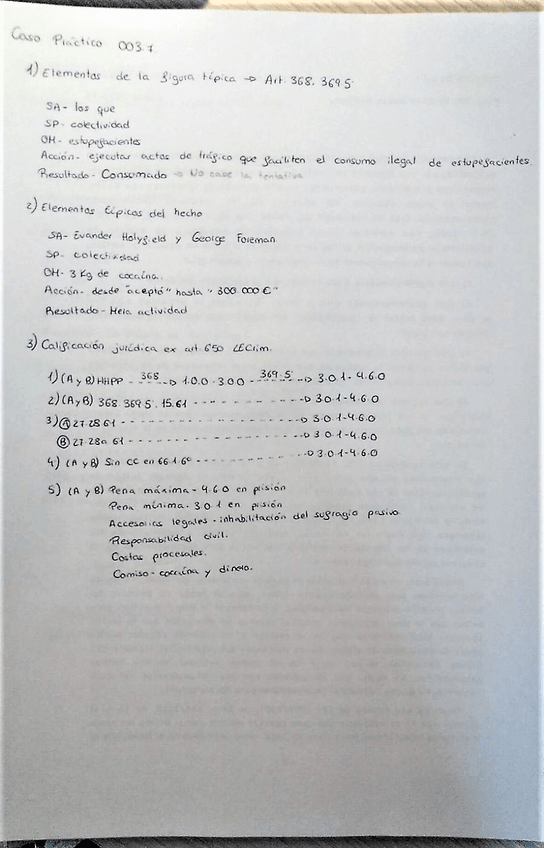 Caso Práctico 003.1
1) Elementos de la figura típica → Art. 368. 369 5
SA - los que
SP - colectividad
OM - estupefacientes
Acción - ejecutar actos de tráfico que faciliten el consumo ilegal de estupefacientes
Resultado - Consumado → No cabe la tentativa
2) Elementos típicos del hecho
SA - Evander Holyfield y George Foreman
SP - colectividad
OM - 3 Kg de cocaína.
Acción - desde "aceptó" hasta "300.000 €"
Resultado - Mera actividad
3) Calificación jurídica ex art 650 LECrim.
1) (A y B) HHPP - 368 → 1.0.0 - 3.0.0 - 369.5 → 3.0.1 - 4.6.0
2) (A y B) 368. 369 5. 15. 61 → 3.0.1 - 4.6.0
3) Ⓐ 27. 28 61 → 3.0.1 - 4.6.0
Ⓑ 27. 28a 61 → 3.0.1 - 4.6.0
4) (A y B) Sin CC en 66.1.6º → 3.0.1 - 4.6.0
5) (A y B) Pena máxima - 4.6.0 en prisión
Pena mínima - 3.0.1 en prisión
Accesorias legales - inhabilitación del sufragio pasivo.
Responsabilidad civil.
Costas procesales.
Comiso - cocaína y dinero.